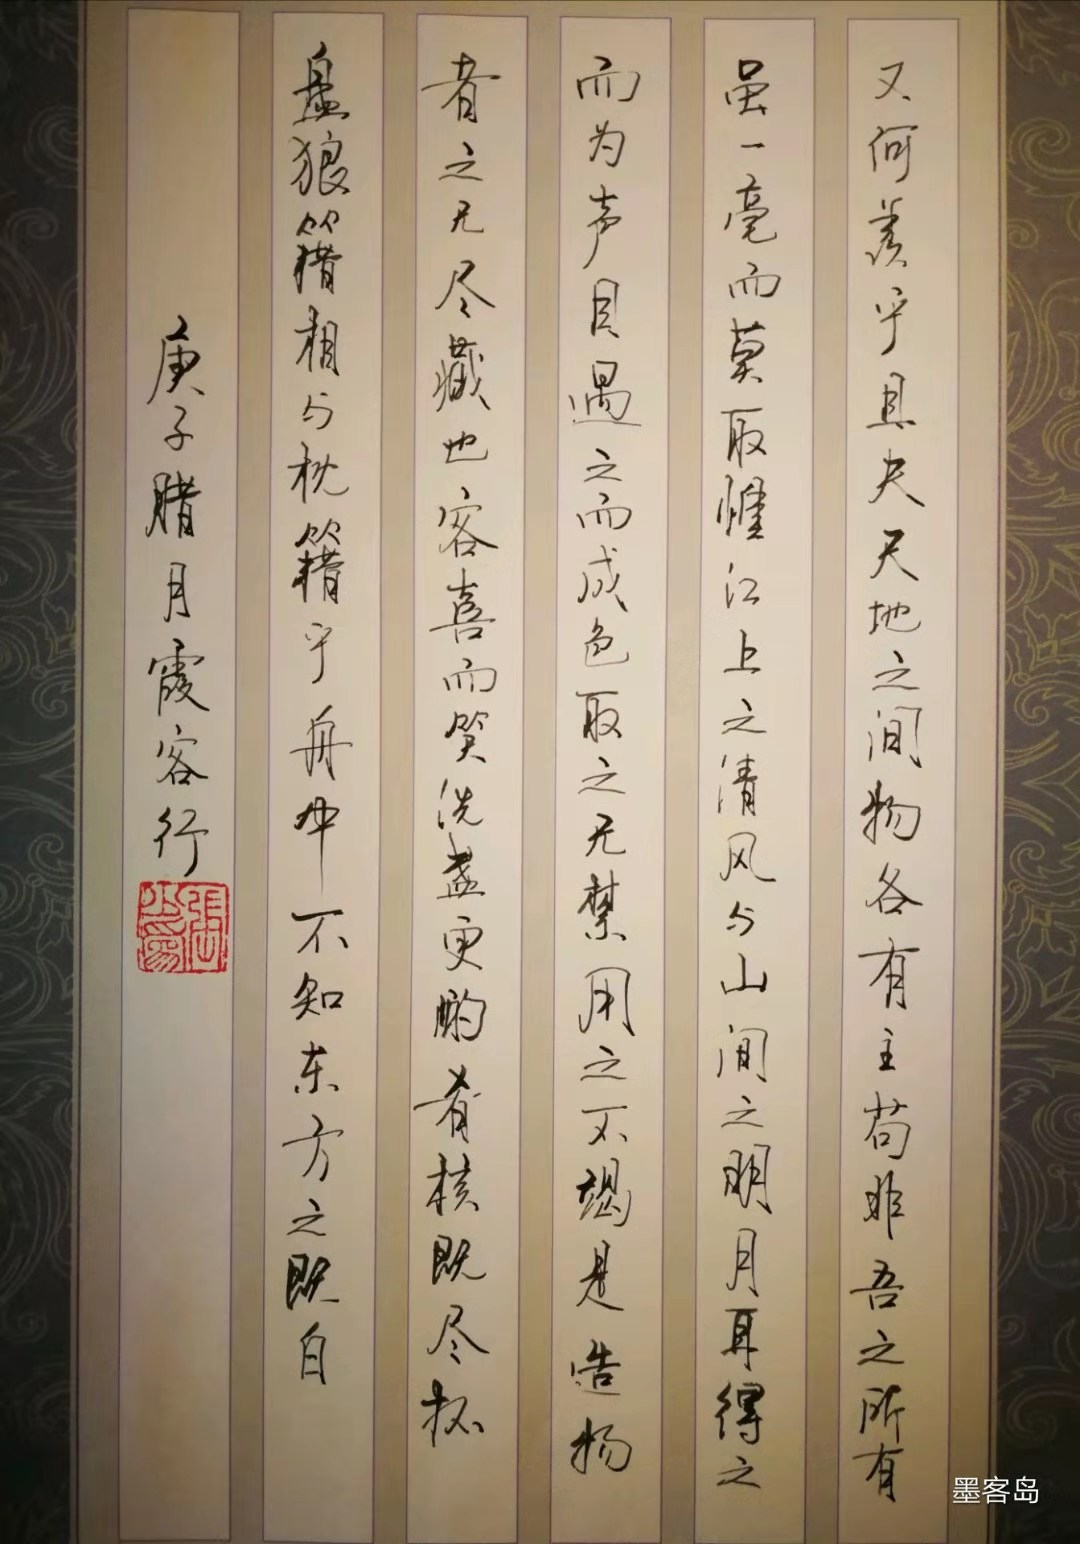 又何羡乎且夫天地之间物各有主苟非吾之所有
虽一毫而莫取惟江上之清风与山间之明月耳得之
而为声目遇之而成色取之无禁用之不竭是造物
者之无尽藏也客喜而笑洗盏更酌肴核既尽杯
盘狼籍相与枕籍乎舟中不知东方之既白
庚子腊月霞客行
墨客岛